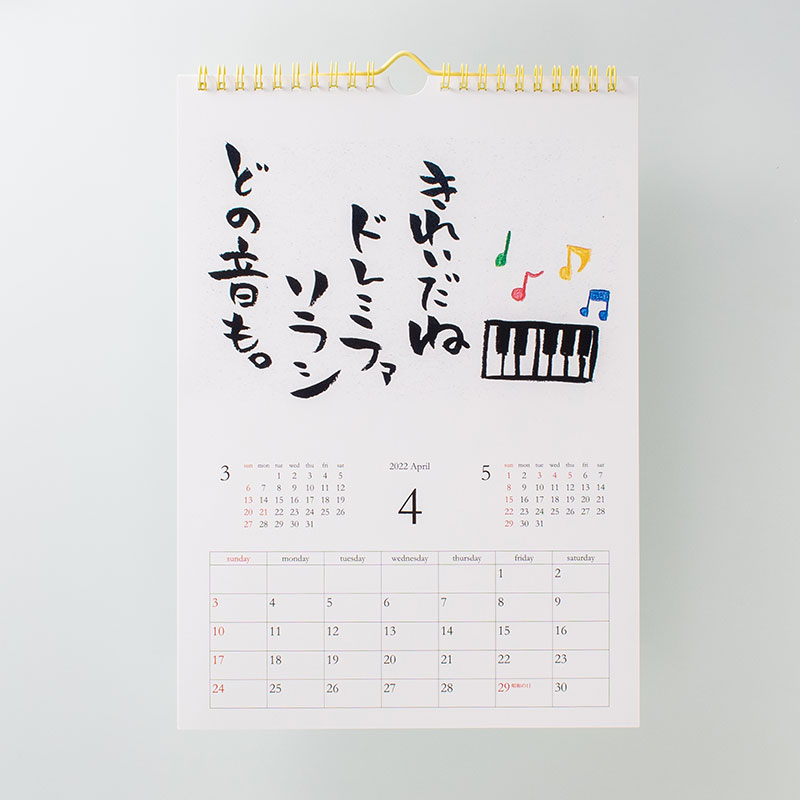 きれいだね
ドレミファ
ソラシ
どの音も。
3
sun mon tue wed thu fri sat
1 2 3 4 5
6 7 8 9 10 11 12
13 14 15 16 17 18 19
20 21 22 23 24 25 26
27 28 29 30 31
2022 April
4
5
sun mon tue wed thu fri sat
1 2 3 4 5 6 7
8 9 10 11 12 13 14
15 16 17 18 19 20 21
22 23 24 25 26 27 28
29 30 31
sunday monday tuesday wednesday thursday friday saturday
1 2
3 4 5 6 7 8 9
10 11 12 13 14 15 16
17 18 19 20 21 22 23
24 25 26 27 28 29 昭和の日 30